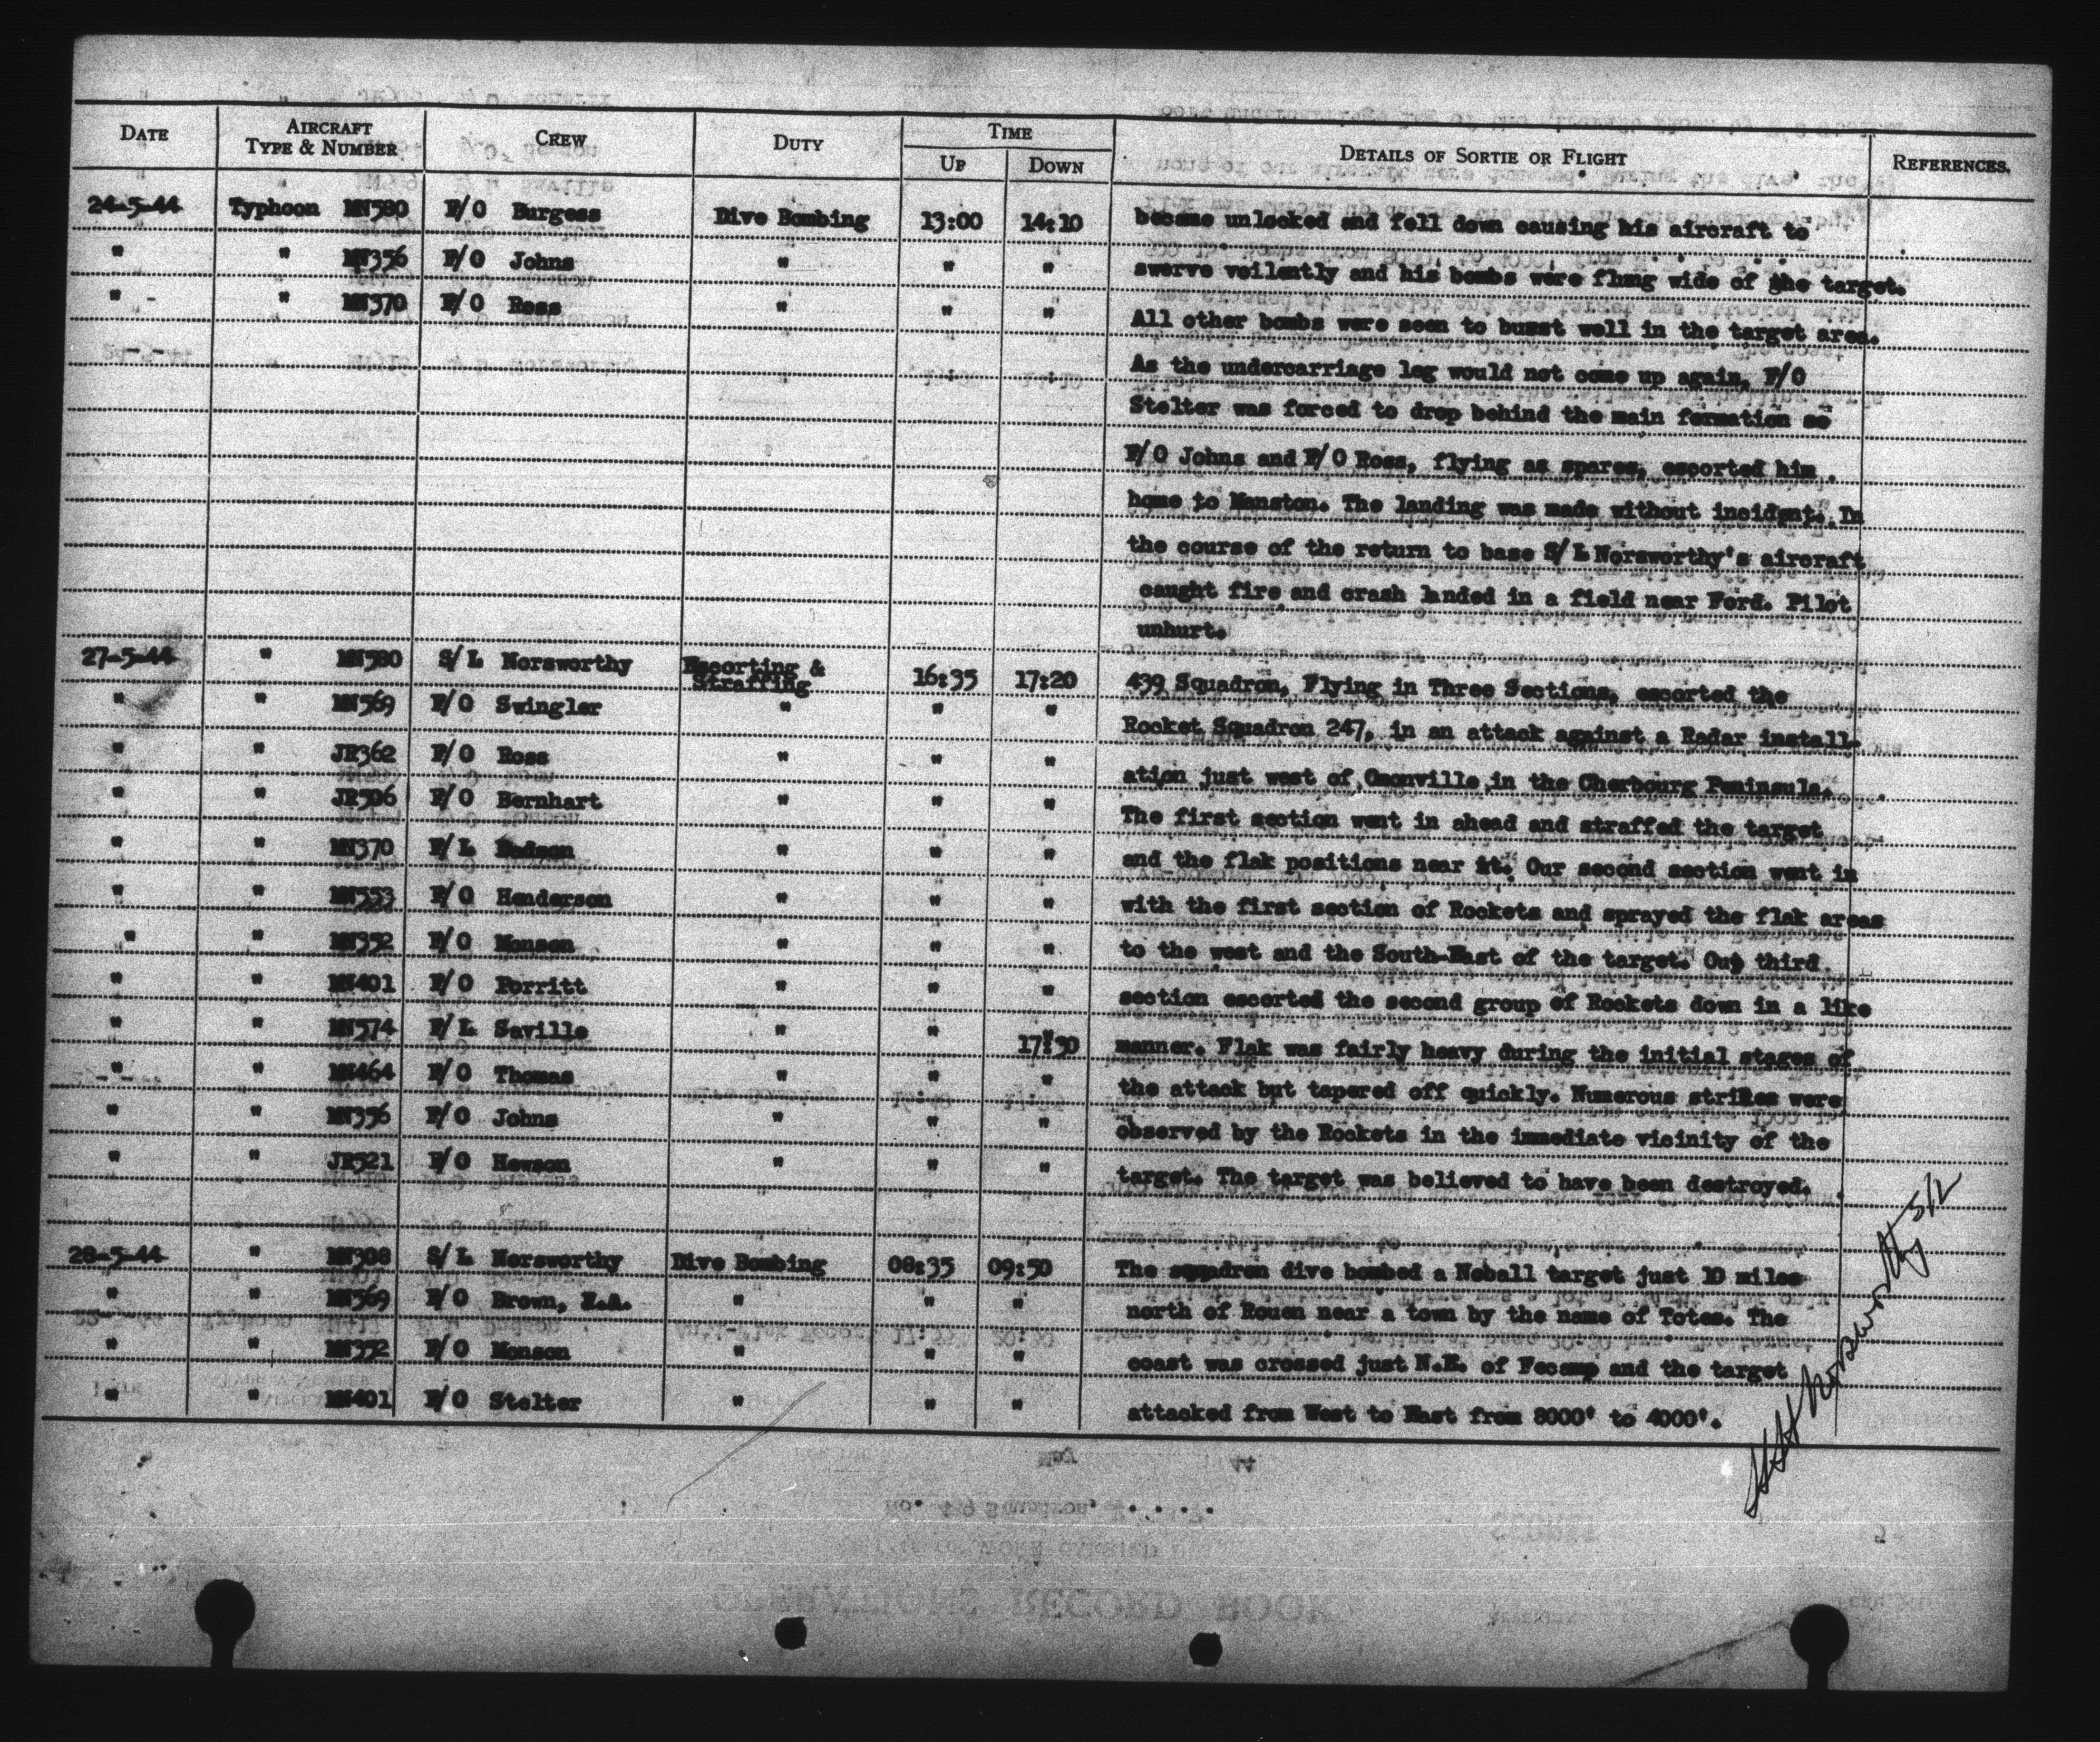 DATE AIRCRAFT TYPE & NUMBER CREW DUTY TIME UP DOWN DETAILS OF SORTIE OR FLIGHT REFERENCES.
24-5-44 Typhoon MN580 F/O Burgess Dive Bombing 13:00 14:10 became unlocked and fell down causing his aircraft to
" " MN356 F/O Johns " " " swerve veilently and his bombs were flung wide of the target.
" " MN370 F/O Ross " " " All other bombs were seen to burst well in the target area.
As the undercarriage leg would not come up again, F/O
Stelter was forced to drop behind the main formation so
F/O Johns and F/O Ross, flying as spares, escorted him
home to Manston. The landing was made without incident. In
the course of the return to base S/L Norsworthy's aircraft
caught fire and crash landed in a field near Ford. Pilot
unhurt.
27-5-44 " MN580 S/L Norsworthy Escorting & Straffing 16:35 17:20 439 Squadron, Flying in Three Sections, escorted the
" " MN569 F/O Swingler " " " Rocket Squadron 247, in an attack against a Radar install-
" " JR362 F/O Ross " " " ation just west of Omonville in the Cherbourg Peninsula.
" " JR506 F/O Bernhart " " " The first section went in ahead and straffed the target
" " MN370 F/L " " " and the flak positions near it. Our second section went in
" " MN553 F/O Henderson " " " with the first section of Rockets and sprayed the flak areas
" " MN352 F/O Monson " " " to the west and the South-East of the target. Our third
" " MN401 F/O Porritt " " " section escorted the second group of Rockets down in a like
" " MN574 F/L Saville " " 17:30 manner. Flak was fairly heavy during the initial stages of
" " MN464 F/O Thomas " " " the attack but tapered off quickly. Numerous strikes were
" " MN356 F/O Johns " " " observed by the Rockets in the immediate vicinity of the
" " JR521 F/O Hewson " " " target. The target was believed to have been destroyed.
28-5-44 " MN308 S/L Norsworthy Dive Bombing 08:35 09:50 The squadron dive bombed a Noball target just 10 miles
" " MN569 F/O Brown, " " " north of Rouen near a town by the name of Totes. The
" " MN352 F/O Monson " " " coast was crossed just N.E. of Fecamp and the target
" " MN401 F/O Stelter " " " attacked from West to East from 8000' to 4000'.
Norsworthy S/L